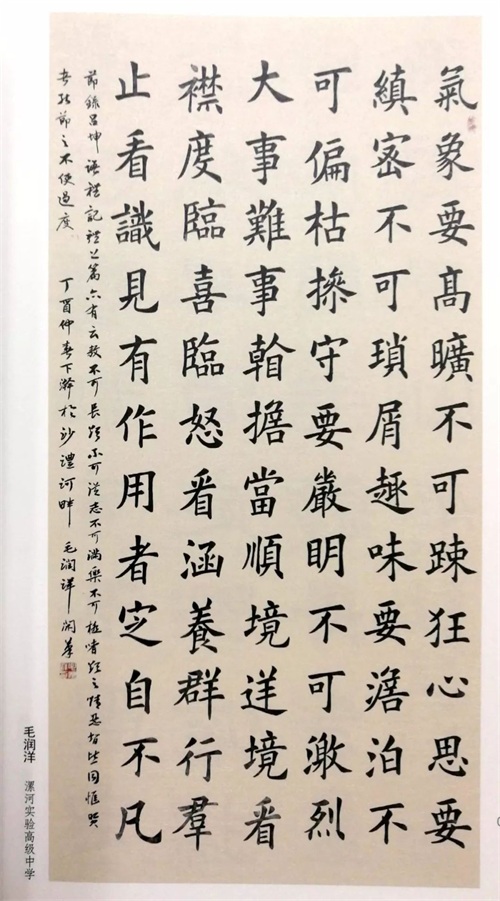 氣象要髙曠不可踈狂心思要
縝宻不可瑣屑趣味要澹泊不
可偏枯撡守要嚴明不可激烈
大事難事㸔擔當順境逆境看
襟度臨喜臨怒看涵養群行羣
止看識見有作用者定自不凡
節錄呂坤語禮記禮上篇亦有云敖不可長欲不可從志不可滿樂不可極嗜欲之情
者能節之不使過度 丁酉仲春下澣於沙澧河畔 毛潤洋
毛润洋 漯河实验高级中学